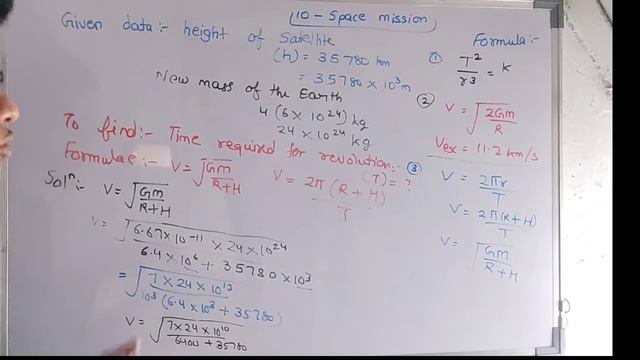 10 - Space mission
Given data:- height of Satellite
(h) = 35780 km
= 35780 × 10³m
New mass of the Earth
4 (6 × 10²⁴) kg
24 × 10²⁴ kg
To find:- Time required for revolution:- (T) = ?
Formulae:- V = √GM/R+H V = 2π (R + H)/T
Solⁿ:- V = √GM/R+H
V = √6.67 × 10⁻¹¹ × 24 × 10²⁴/6.4 × 10⁶ + 35780 × 10³
= √7 × 24 × 10¹³/10³ (6.4 × 10³ + 35780)
V = √7 × 24 × 10¹⁰/6400 + 35780
Formula:-
① T²/r³ = K
② V = √2GM/R
Vesc = 11.2 km/s
③ V = 2πr/T
V = 2π(R + H)/T
V = √GM/R+H